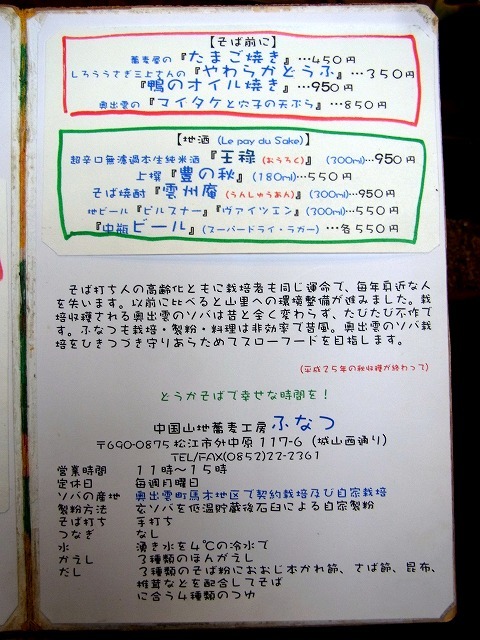 【そば前に】
蕎麦屋の『たまご焼き』…450円
しろううさぎ三上さんの『やわらかとうふ』…350円
『鴨のオイル焼き』…950円
奥出雲の『マイタケと穴子の天ぷら』…850円
【地酒 (Le pay du Sake)】
超辛口無濾過本生純米酒『王祿(おうろく)』(300ml)…950円
上撰『豊の秋』(180ml)…550円
そば焼酎『雲州庵(うんしゅうあん)』(300ml)…950円
地ビール『ピルスナー』『ヴァイツェン』(300ml)…550円
『中瓶ビール』(スーパードライ・ラガー)…各550円
そば打ち人の高齢化ともに栽培者も同じ運命で、毎年身近な人
を失います。以前に比べると山里への環境整備が進みました。栽
培収穫される奥出雲のソバは昔と全く変わらず、たびたび不作で
す。ふなつも栽培・製粉・料理は非効率で昔風。奥出雲のソバ栽
培をひきつづき守りあらためてスローフードを目指します。
(平成25年の秋収穫が終わって)
どうかそばで幸せな時間を！
中国山地蕎麦工房 ふなつ
〒690-0875 松江市外中原117-6(城山西通り)
TEL/FAX(0852)22-2361
営業時間 11時～15時
定休日 毎週月曜日
ソバの産地 奥出雲町馬木地区で契約栽培及び自家栽培
製粉方法 玄ソバを低温貯蔵後石臼による自家製粉
そば打ち 手打ち
つなぎ なし
水 湧き水を4℃の冷水で
かえし 3種類のほんがえし
だし 3種類のそば粉におおじ本かれ節、さば節、昆布、
椎茸などを配合してそば
に合う4種類のつゆ